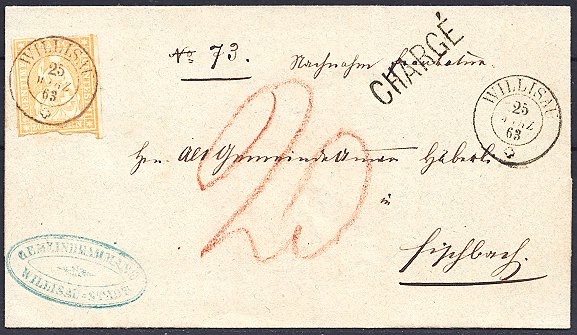 WILLISAU
25
MÄRZ
63
No 73. Nachnahm
CHARGÉ
WILLISAU
25
MÄRZ
63
20
Hrn. Alt Gemeindeamman Häberli
in
Fischbach.
GEMEINDEAMMANN
WILLISAU-STADT